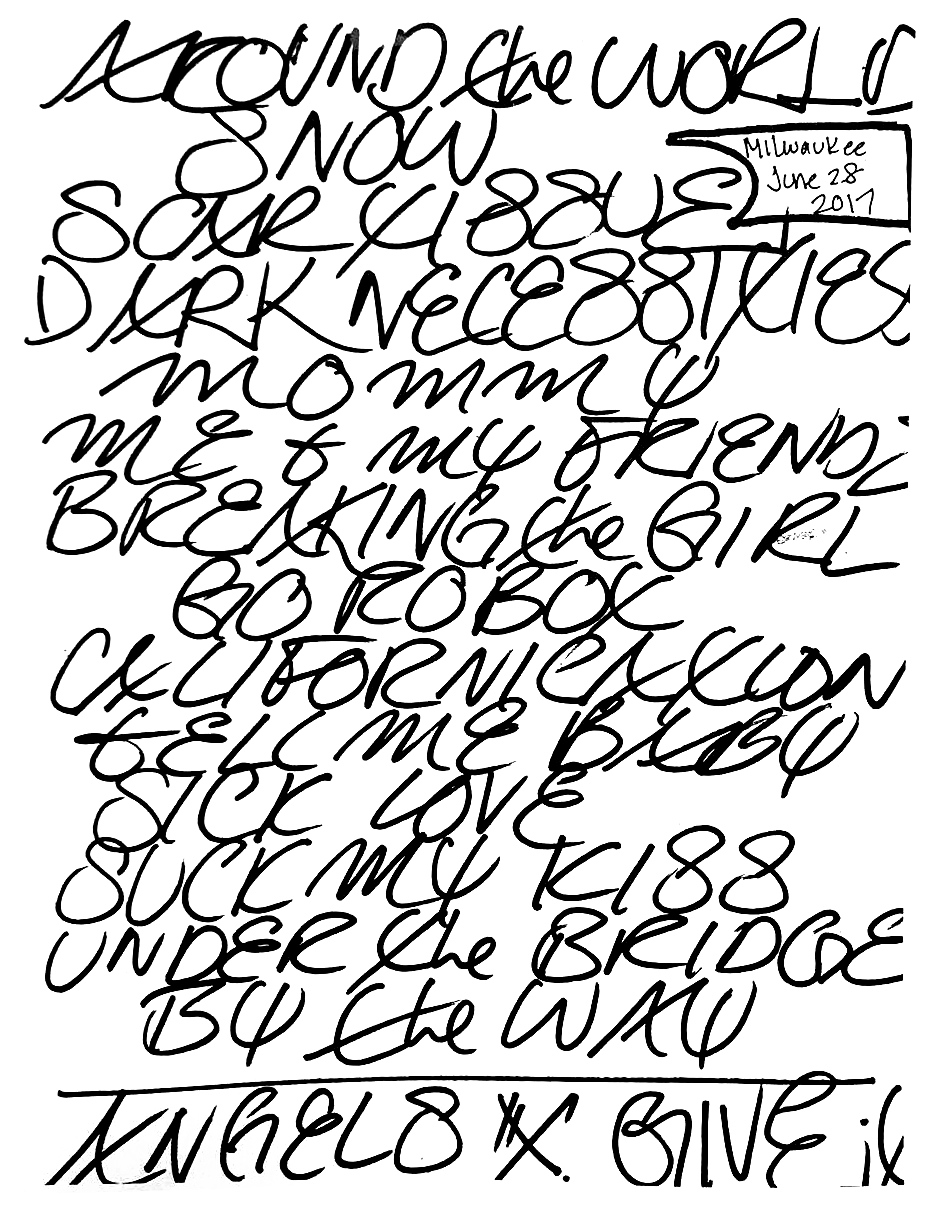 AROUND the WORLD
SNOW
Milwaukee
June 28
2017
SCAR TISSUE
DARK NECESSITIES
MOMMY
ME & MY FRIENDS
BREAKING the GIRL
GO ROBOX
CALIFORNICATION
TELL ME BABY
SICK LOVE
SUCK MY KISS
UNDER the BRIDGE
BY the WAY
ANGELS GIVE it